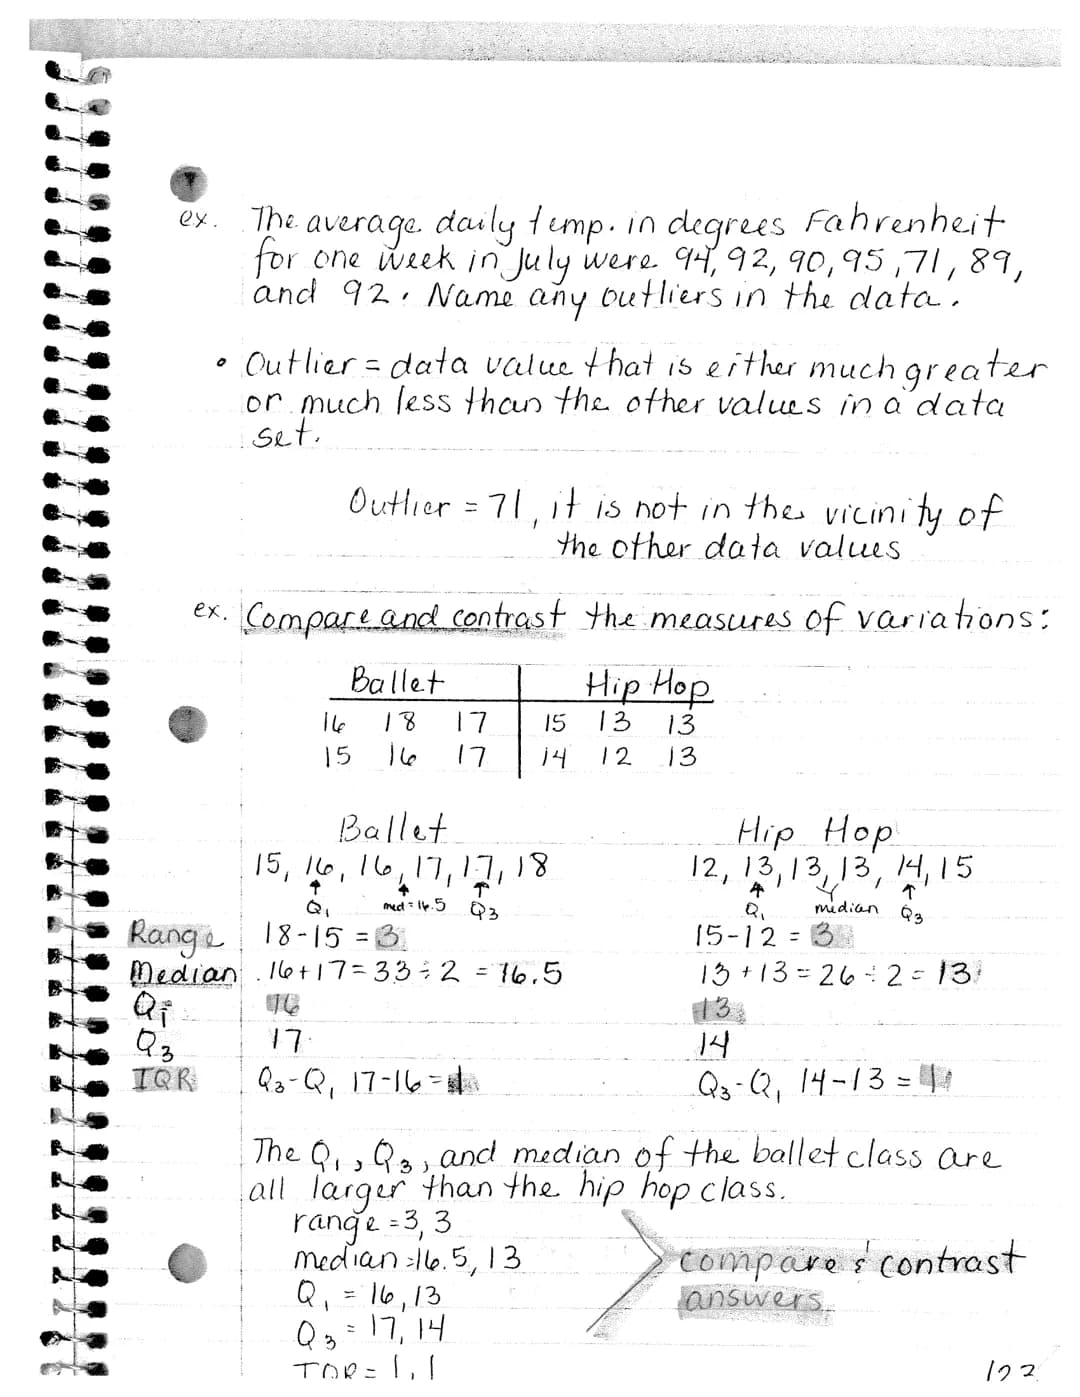 ex. The average daily temp. in degrees Fahrenheit
for one week in July were 94, 92, 90, 95, 71, 89,
and 92. Name any outliers in the data.
• Outlier = data value that is either much greater
or much less than the other values in a data
set.
Outlier = 71, it is not in the vicinity of
the other data values
ex. Compare and contrast the measures of variations:
Ballet Hip Hop
16 18 17 15 13 13
15 16 17 14 12 13
Ballet Hip Hop
15, 16, 16, 17, 17, 18 12, 13, 13, 13, 14, 15
↑ ↑ ↑ ↑ ↑
Q₁ med = 16.5 Q₃ Q₁ median Q₃
Range 18-15 = 3 15-12 = 3
Median 16+17=33÷2 = 16.5 13+13=26÷2=13
Q₁ 16 13
Q₃ 17 14
IQR Q₃-Q₁ 17-16=1 Q₃-Q₁ 14-13=1
The Q₁, Q₃, and median of the ballet class are
all larger than the hip hop class.
range = 3, 3
median = 16.5, 13 compare & contrast
Q₁ = 16, 13 answers
Q₃ = 17, 14
IQR = 1, 1
122